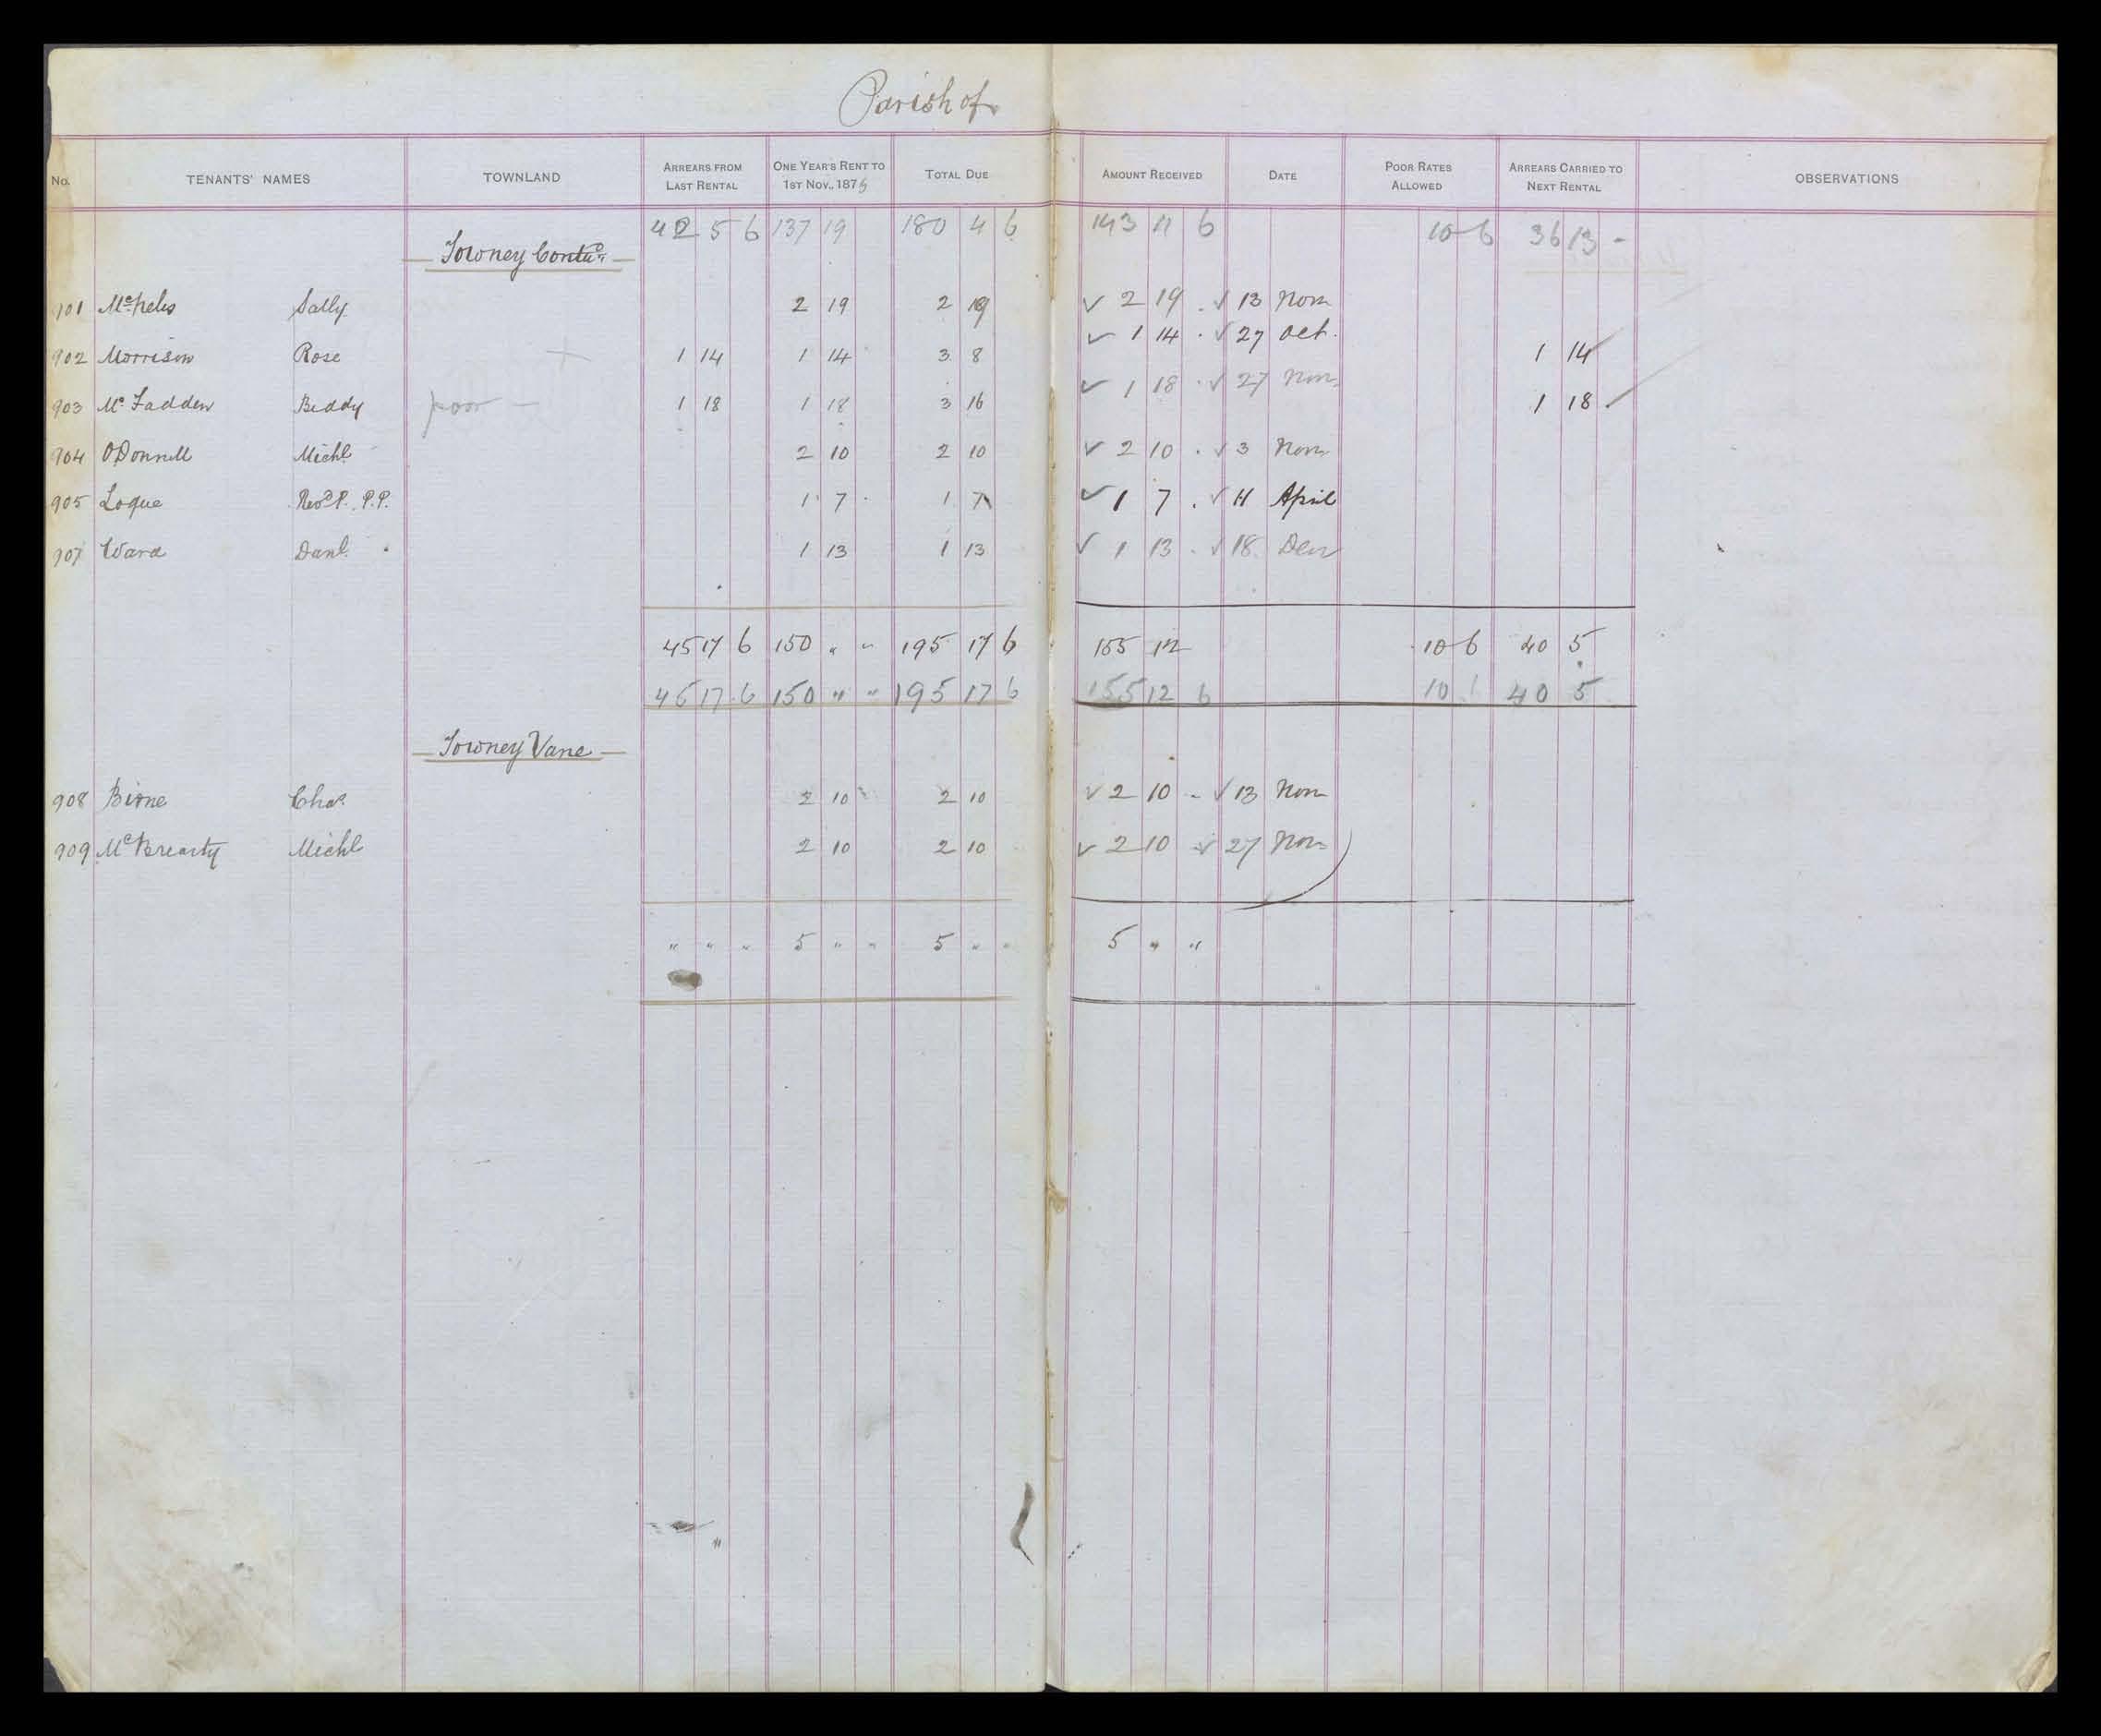 Parish of
No. TENANTS' NAMES TOWNLAND ARREARS FROM LAST RENTAL ONE YEAR'S RENT TO 1ST NOV., 1875 TOTAL DUE AMOUNT RECEIVED DATE POOR RATES ALLOWED ARREARS CARRIED TO NEXT RENTAL OBSERVATIONS
42 5 6 137 19 180 4 6 143 11 6 10 6 36 13 -
Towney Contd.
901 Sally 2 19 2 19 ✓ 2 19 . ✓ 13 Nov
902 Morrison Rose + 1 14 1 14 3 8 ✓ 1 14 . ✓ 27 Oct. 1 14
903 Mc Fadden Biddy poor — 1 18 1 18 3 16 ✓ 1 18 . ✓ 27 Nov 1 18
904 O'Donnell Michl 2 10 2 10 ✓ 2 10 . ✓ 3 Nov
905 Logue Revd P. P.P. 1 7 1 7 ✓ 1 7 . ✓ 11 April
907 Ward Danl. 1 13 1 13 ✓ 1 13 . ✓ 18 Decr
45 17 6 150 " " 195 17 6 155 12 10 6 40 5
45 17 6 150 " " 195 17 6 155 12 6 10 40 5
Towney Vane
908 Birne Chas. 2 10 2 10 ✓ 2 10 - ✓ 13 Nov
909 McBrearty Michl 2 10 2 10 ✓ 2 10 ✓ 27 Nov
" " " 5 " " 5 " " 5 " "